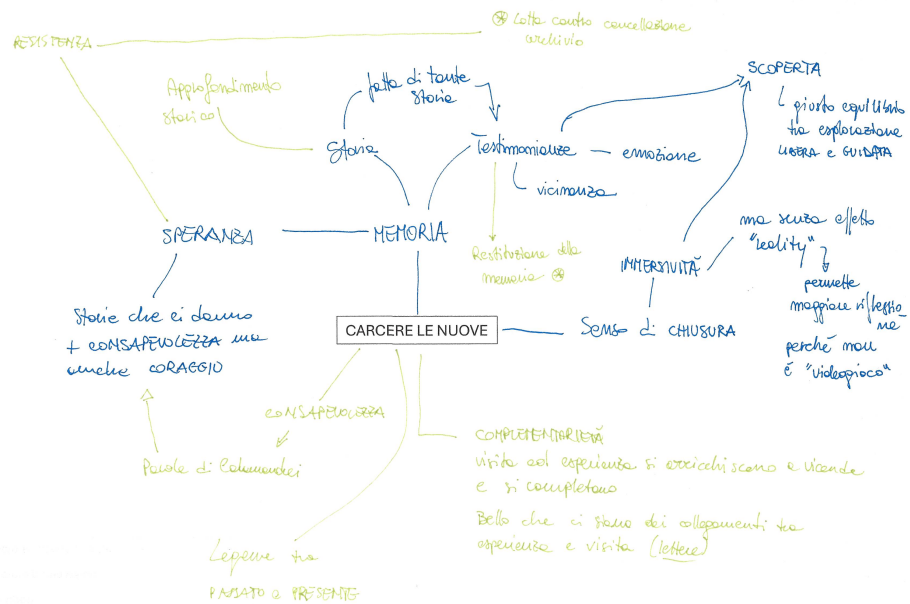 RESISTENZA
⊛ Lotta contro cancellazione
archivio
Approfondimento
storico
fatta di tante
storie
Storia
Testimonianze
emozione
vicinanza
SCOPERTA
giusto equilibrio
tra esplorazione
LIBERA e GUIDATA
SPERANZA
MEMORIA
Restituzione della
memoria ⊛
IMMERSIVITÀ
ma senza effetto
"reality"
permette
maggiore riflessio-
ne
perché non
è "videogioco"
Storie che ci danno
+ CONSAPEVOLEZZA ma
anche CORAGGIO
CARCERE LE NUOVE
Senso di CHIUSURA
CONSAPEVOLEZZA
Parole di Calamandrei
COMPLEMENTARIETÀ
visita ed esperienza si arricchiscono a vicenda
e si completano
Bello che ci siano dei collegamenti tra
esperienza e visita (lettere)
Legame tra
PASSATO e PRESENTE